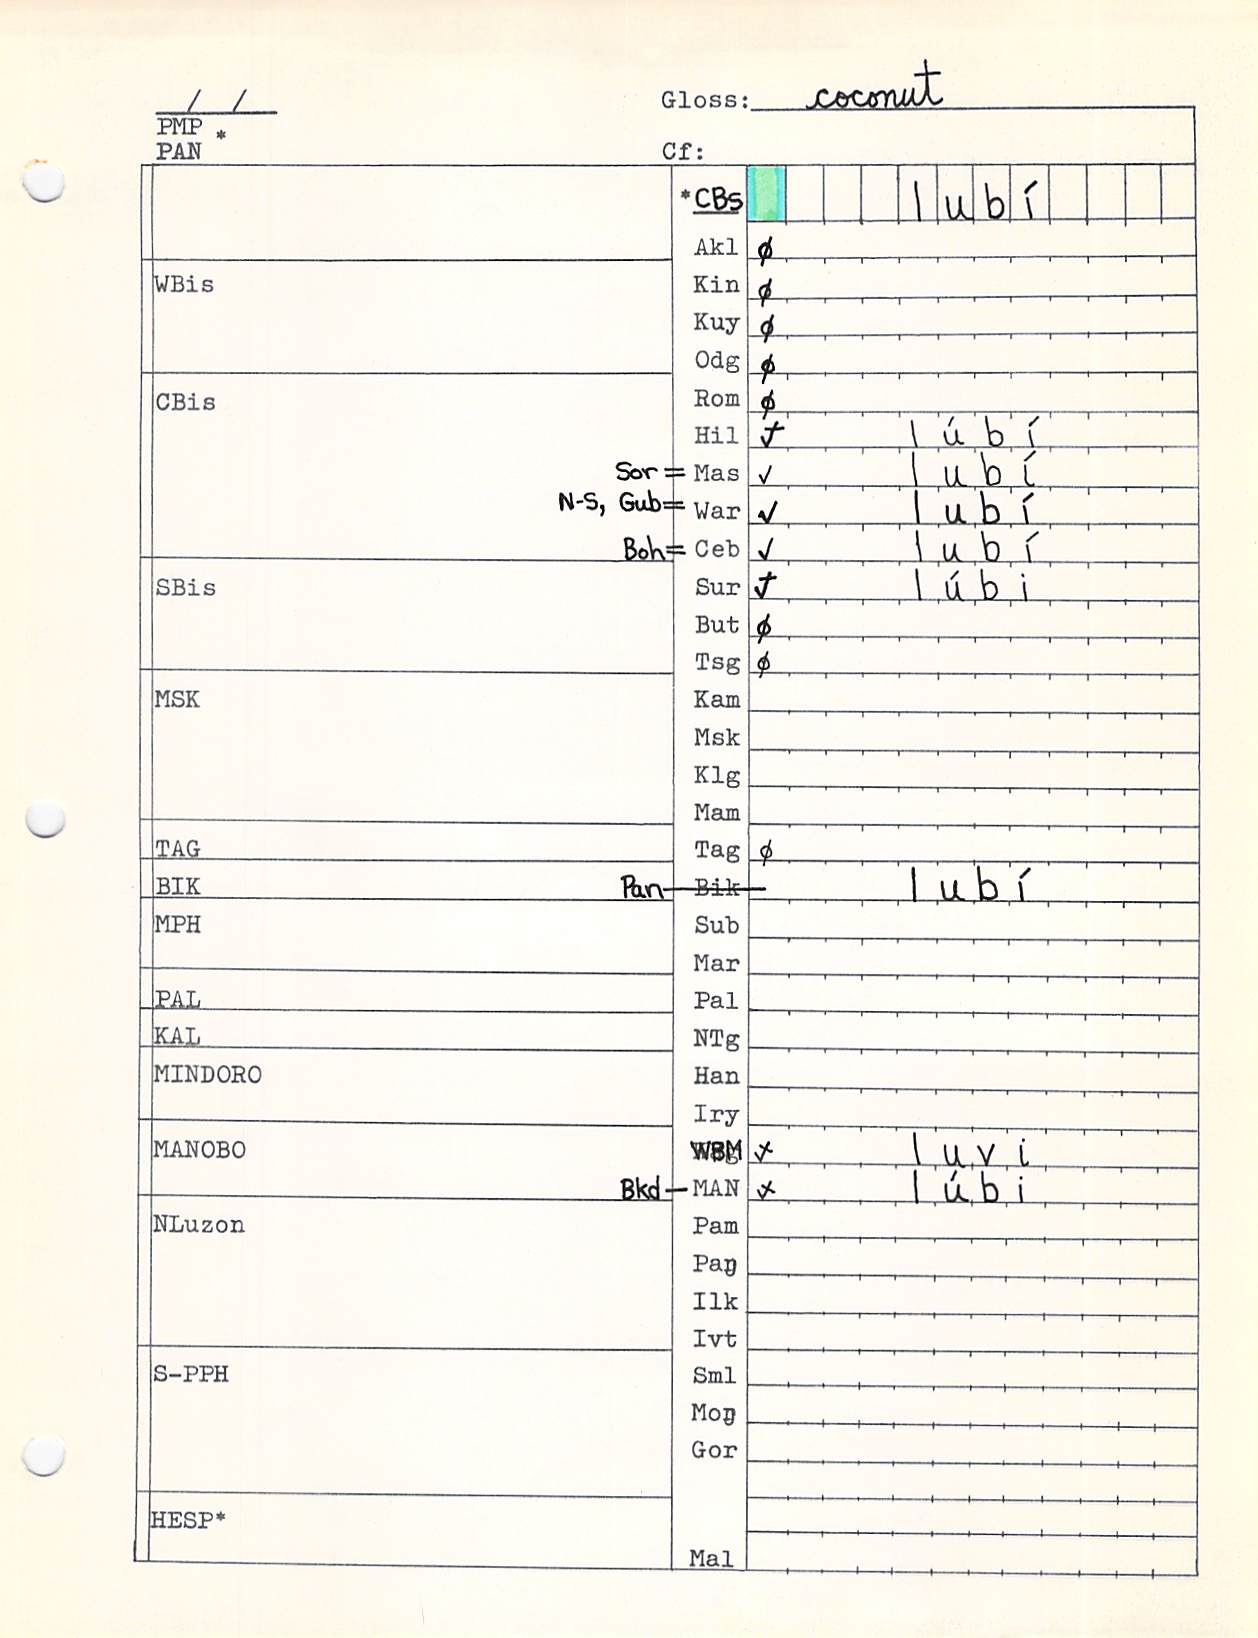 / /
Gloss: coconut
PMP *
PAN
Cf:
*CBs lubí
Akl ∅
WBis
Kin ∅
Kuy ∅
Odg ∅
CBis
Rom ∅
Hil ✓ lúbí
Sor = Mas ✓ lubí
N-S, Gub = War ✓ lubí
Boh = Ceb ✓ lubí
SBis
Sur ✓ lúbi
But ∅
Tsg ∅
MSK
Kam
Msk
Klg
Mam
TAG
Tag ∅
BIK
Pan — Bik lubí
MPH
Sub
Mar
PAL
Pal
KAL
NTg
MINDORO
Han
Iry
MANOBO
WBM x luvi
Bkd — MAN x lúbi
NLuzon
Pam
Paŋ
Ilk
Ivt
S-PPH
Sml
Moŋ
Gor
HESP*
Mal